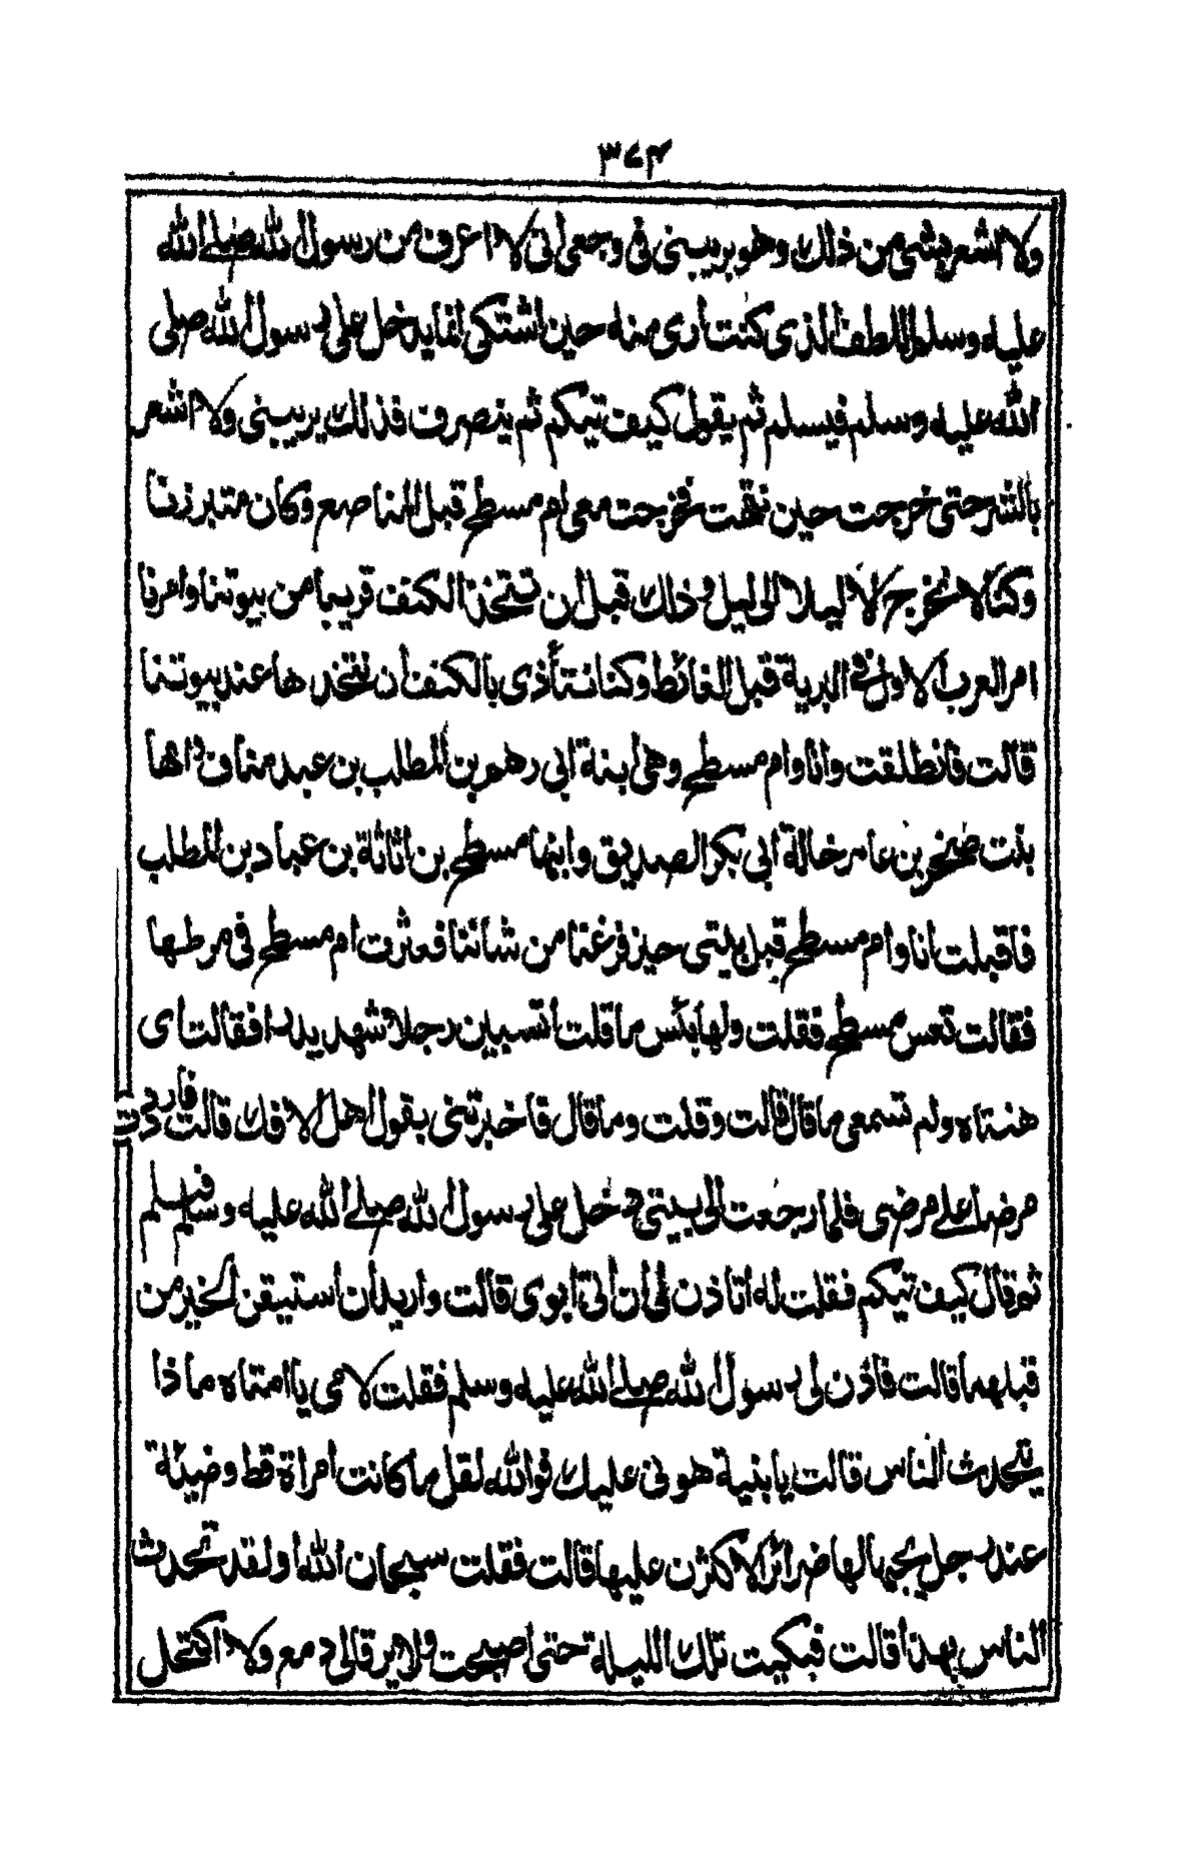 ٣٧٤
ولا اشعر بشئ من ذلك وهو يريبنى فى وجعى أنى لا اعرف من رسول الله صلى الله
عليه وسلم اللطف الذى كنت أرى منه حين اشتكى انما يدخل على رسول الله صلى
الله عليه وسلم فيسلم ثم يقول كيف تيكم ثم ينصرف فذلك يريبنى ولا اشعر
بالشر حتى خرجت حين نقهت فخرجت معى ام مسطح قبل المناصع وكان متبرزنا
وكنا لا نخرج الا ليلا الى ليل وذلك قبل أن نتخذ الكنف قريبا من بيوتنا وامرنا
امر العرب الاول فى البرية قبل الغائط وكنا نتأذى بالكنف أن نتخذها عند بيوتنا
قالت فانطلقت وانا وام مسطح وهى ابنة ابى رهم بن المطلب بن عبد مناف وامها
بنت صخر بن عامر خالة ابى بكر الصديق وابنها مسطح بن اثاثة بن عباد بن المطلب
فاقبلت أنا وام مسطح قبل بيتى حين فرغنا من شأننا فعثرت ام مسطح فى مرطها
فقالت تعس مسطح فقلت ولها بئس ما قلت أتسبين رجلا شهد بدرا فقالت أى
هنتاه ولم تسمعى ما قال قالت وقلت وما قال فاخبرتنى بقول اهل الافك قالت فازددت
مرضا على مرضى فلما رجعت الى بيتى دخل على رسول الله صلى الله عليه وسلم فسلم
ثم قال كيف تيكم فقلت له أتاذن لى أن أتى أبوى قالت واريد أن أستيقن الخبر من
قبلهما قالت فأذن لى رسول الله صلى الله عليه وسلم فقلت لامى يا امتاه ماذا
يتحدث الناس قالت يا بنية هونى عليك فوالله لقل ما كانت امراة قط وضيئة
عند رجل يحبها لها ضرائر الا كثرن عليها قالت فقلت سبحان الله أولقد تحدث
الناس بهذا قالت فبكيت تلك الليلة حتى اصبحت ولا يرقا لى دمع ولا اكتحل